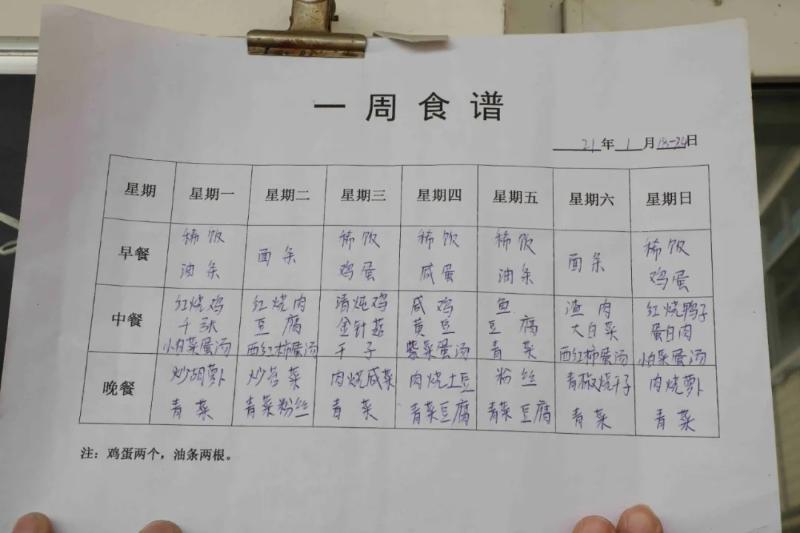 一周食谱
21年1月18-24日
星期 星期一 星期二 星期三 星期四 星期五 星期六 星期日
早餐 稀饭 油条 面条 稀饭 鸡蛋 稀饭 咸蛋 稀饭 油条 面条 稀饭 鸡蛋
中餐 红烧鸡 千张 小白菜蛋汤 红烧肉 豆腐 西红柿蛋汤 清炖鸡 金针菇 千子 咸鸡 黄豆 紫菜蛋汤 鱼 豆腐 青菜 渣肉 大白菜 西红柿蛋汤 红烧鸭子 蛋白肉 小白菜蛋汤
晚餐 炒胡萝卜 青菜 炒菜 青菜粉丝 肉烧咸菜 青菜 肉烧土豆 青菜豆腐 粉丝 青菜豆腐 青椒烧干子 青菜 肉烧萝卜 青菜
注：鸡蛋两个，油条两根。